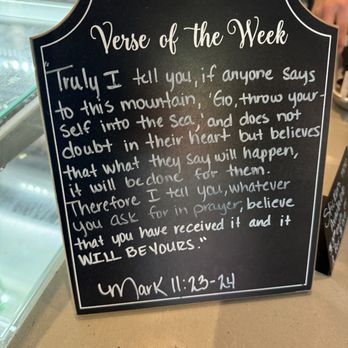 Verse of the Week
"Truly I tell you, if anyone says
to this mountain, 'Go, throw your-
self into the sea,' and does not
doubt in their heart but believes
that what they say will happen,
it will be done for them.
Therefore I tell you, whatever
you ask for in prayer, believe
that you have received it and it
WILL BE YOURS."
Mark 11:23-24